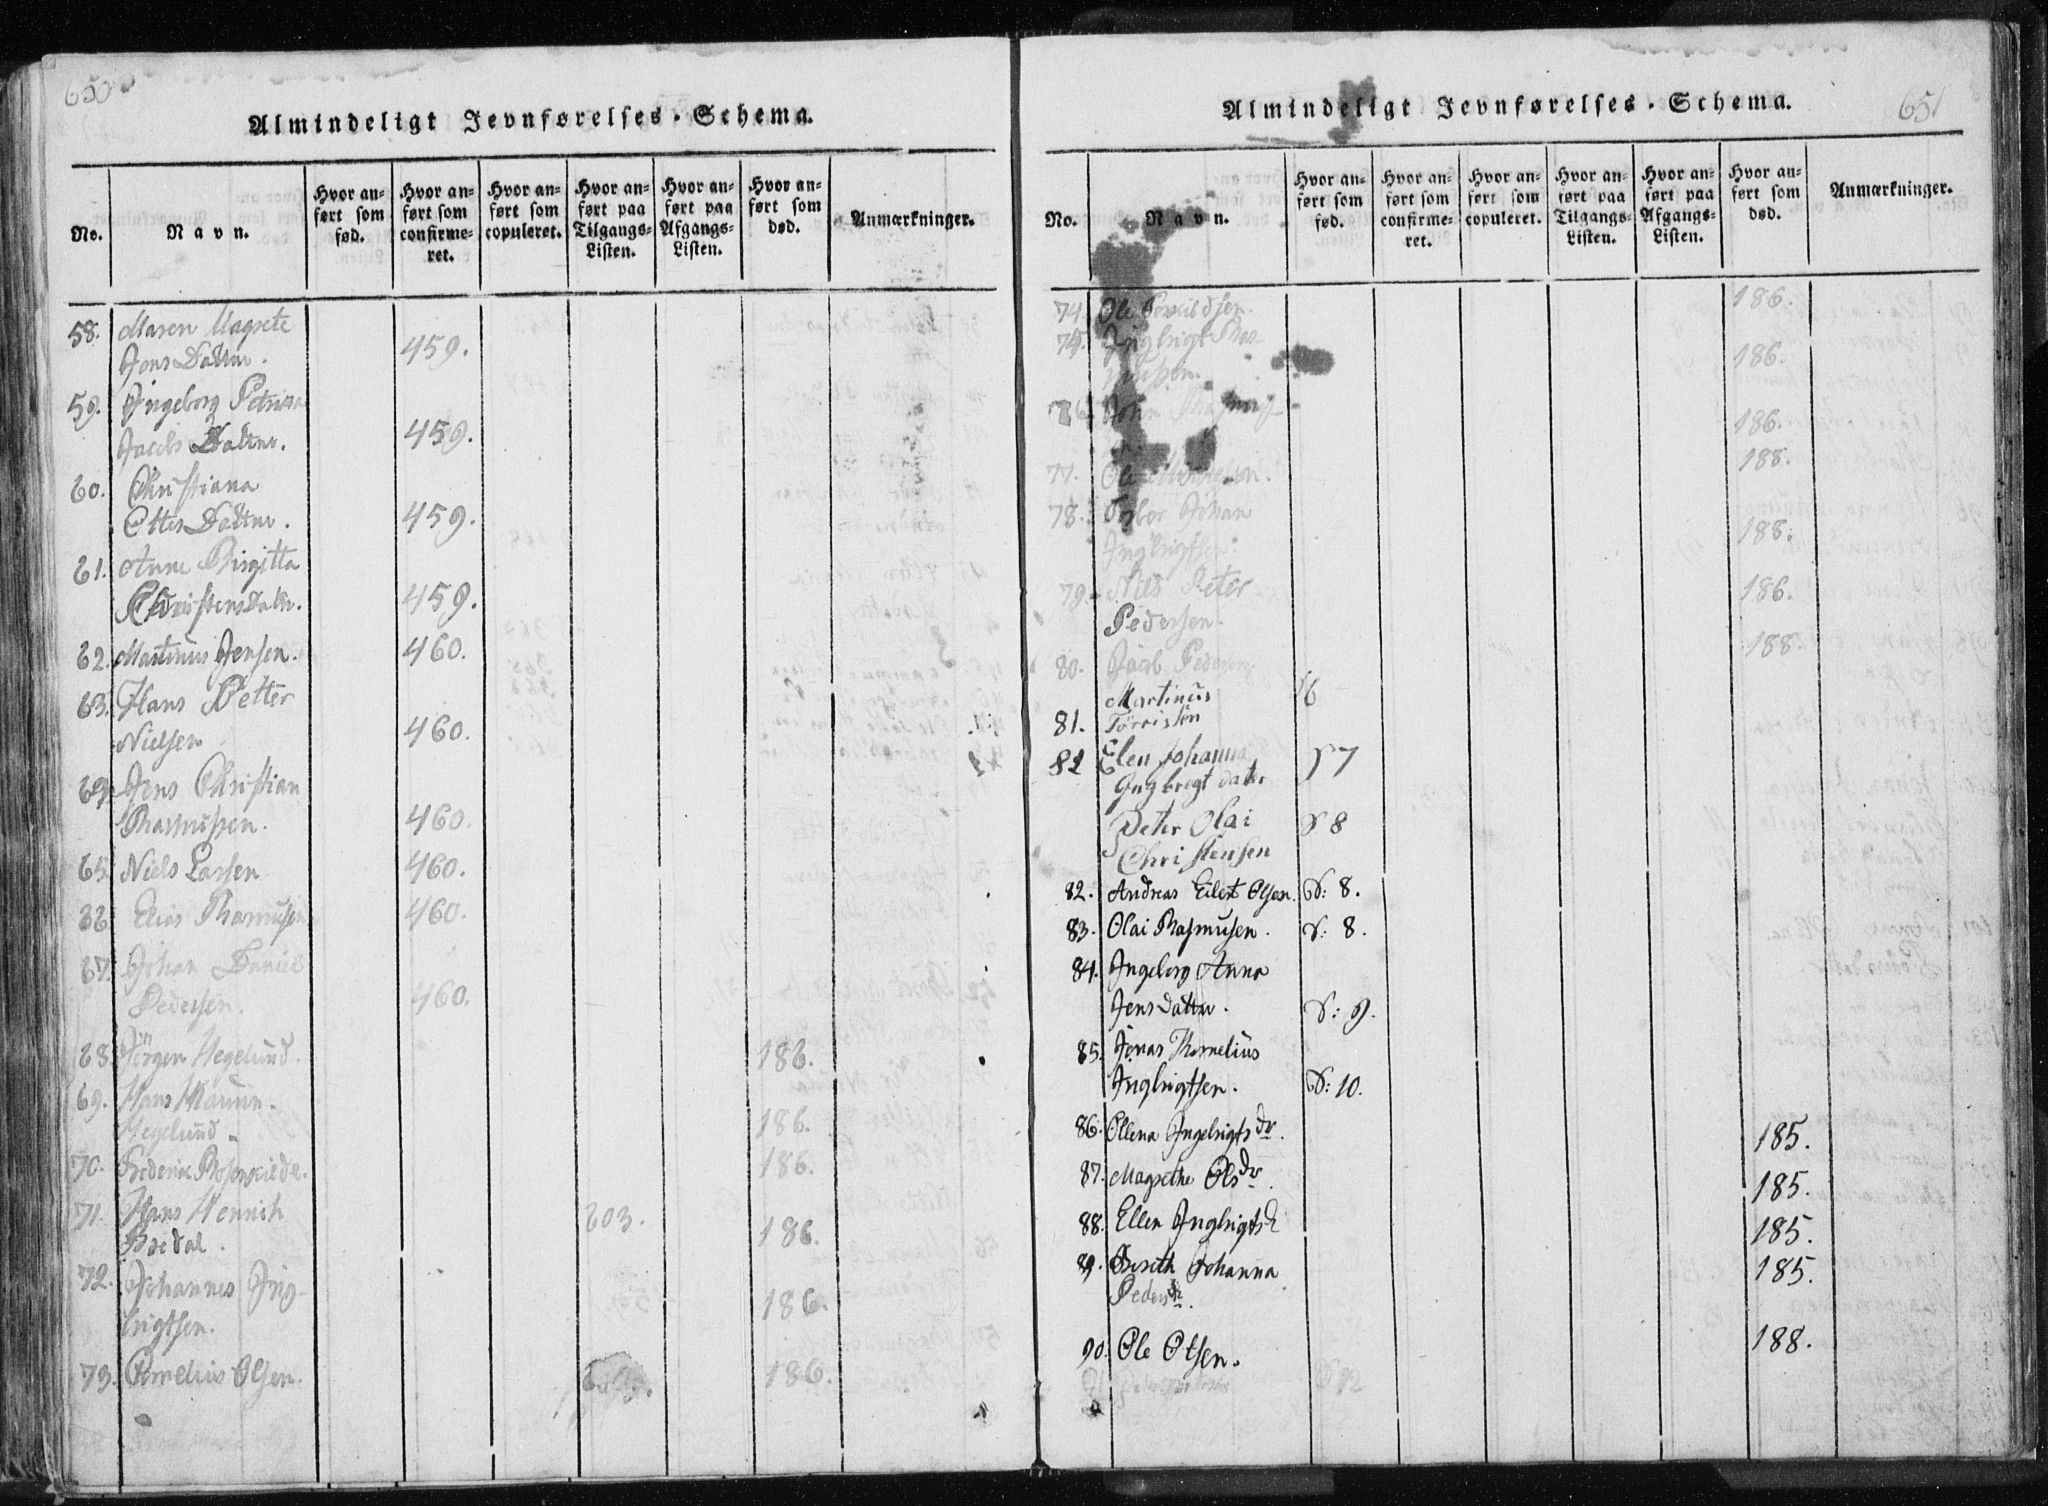 650
Almindeligt Jevnførelses-Schema.
No. Navn. Hvor anført som fød. Hvor anført som confirmeret. Hvor anført som copuleret. Hvor anført paa Tilgangs-Listen. Hvor anført paa Afgangs-Listen. Hvor anført som død. Anmærkninger.
58. Maren Magrete
Jens Datter. 459.
59. Ingeborg Petrina
Jacobs Datter. 459.
60. Christiana
Ottes Datter. 459.
61. Anne Birgitta
Christens Datr. 459.
62. Martinus Jensen. 460.
63. Hans Petter
Nielsen 460.
64. Jens Christian
Rasmussen. 460.
65. Niels Larsen 460.
66. Elias Rasmusen 460.
67. Johan Daniel
Pedersen. 460.
68. Jörgen Hegelund. 186.
69. Hans
Hegelund. 186.
70. Frederik 186.
71. Hans Henrich 603. 186.
72. Johannes Ing-
brigtsen. 186.
73. Cornelius Olsen. 186.
651
Almindeligt Jevnførelses-Schema.
No. Navn. Hvor anført som fød. Hvor anført som confirmeret. Hvor anført som copuleret. Hvor anført paa Tilgangs-Listen. Hvor anført paa Afgangs-Listen. Hvor anført som død. Anmærkninger.
74. Ole 186.
75. Ingbrigt Ras-
mussen. 186.
76. John 186.
77. Ole 188.
78. Johan
Ingbrigtsen. 188.
79. Nils Peter
Pedersen. 186.
80. Jacob Pedersen 188.
Martinus 6
81. Törrisen
82 Elen Johanna S 7
Ingbregt dater
Peter Olai S 8
Christensen
82. Andreas Eilert Olsen. S: 8.
83. Olai Rasmusen. S: 8.
84. Ingeborg Anna
Jens Datter. S: 9.
85. Jonas Kornelius
Ingbrigtsen. S: 10.
86. Ollena Ingebrigts dr. 185.
87. Magrethe Ols dr. 185.
88. Ellen Ingbrigts 185.
89. Bereth Johanna 185.
Peders dr.
90. Ole Olsen. 188.
91